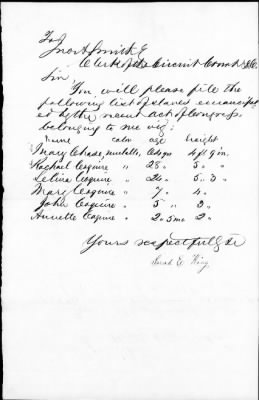 To
Jno A Smith E
Clerk of the Circuit Court D.C.
Sir,
You will please file the
following list of slaves emancipat
ed by the recent act of Congress
belonging to me viz:
name color age height
Mary Chase mulatto, 4 ft 9 in.
Rachael Esquire " 25 " 5 "
Letina Esquire " 24 " 5 " 3 "
Mary Esquire " 7 " 4 "
John Esquire " 5 " 3 "
Annette Esquire " 2 " 5 mo 2 "
Yours respectfully &c
Sarah E King